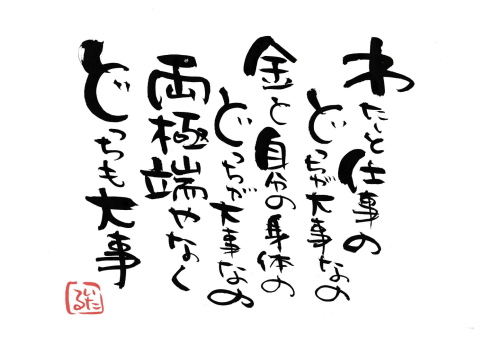 わたしと仕事の
どっちが大事なの
金と自分の身体の
どっちが大事なの
両極端やなく
どっちも大事